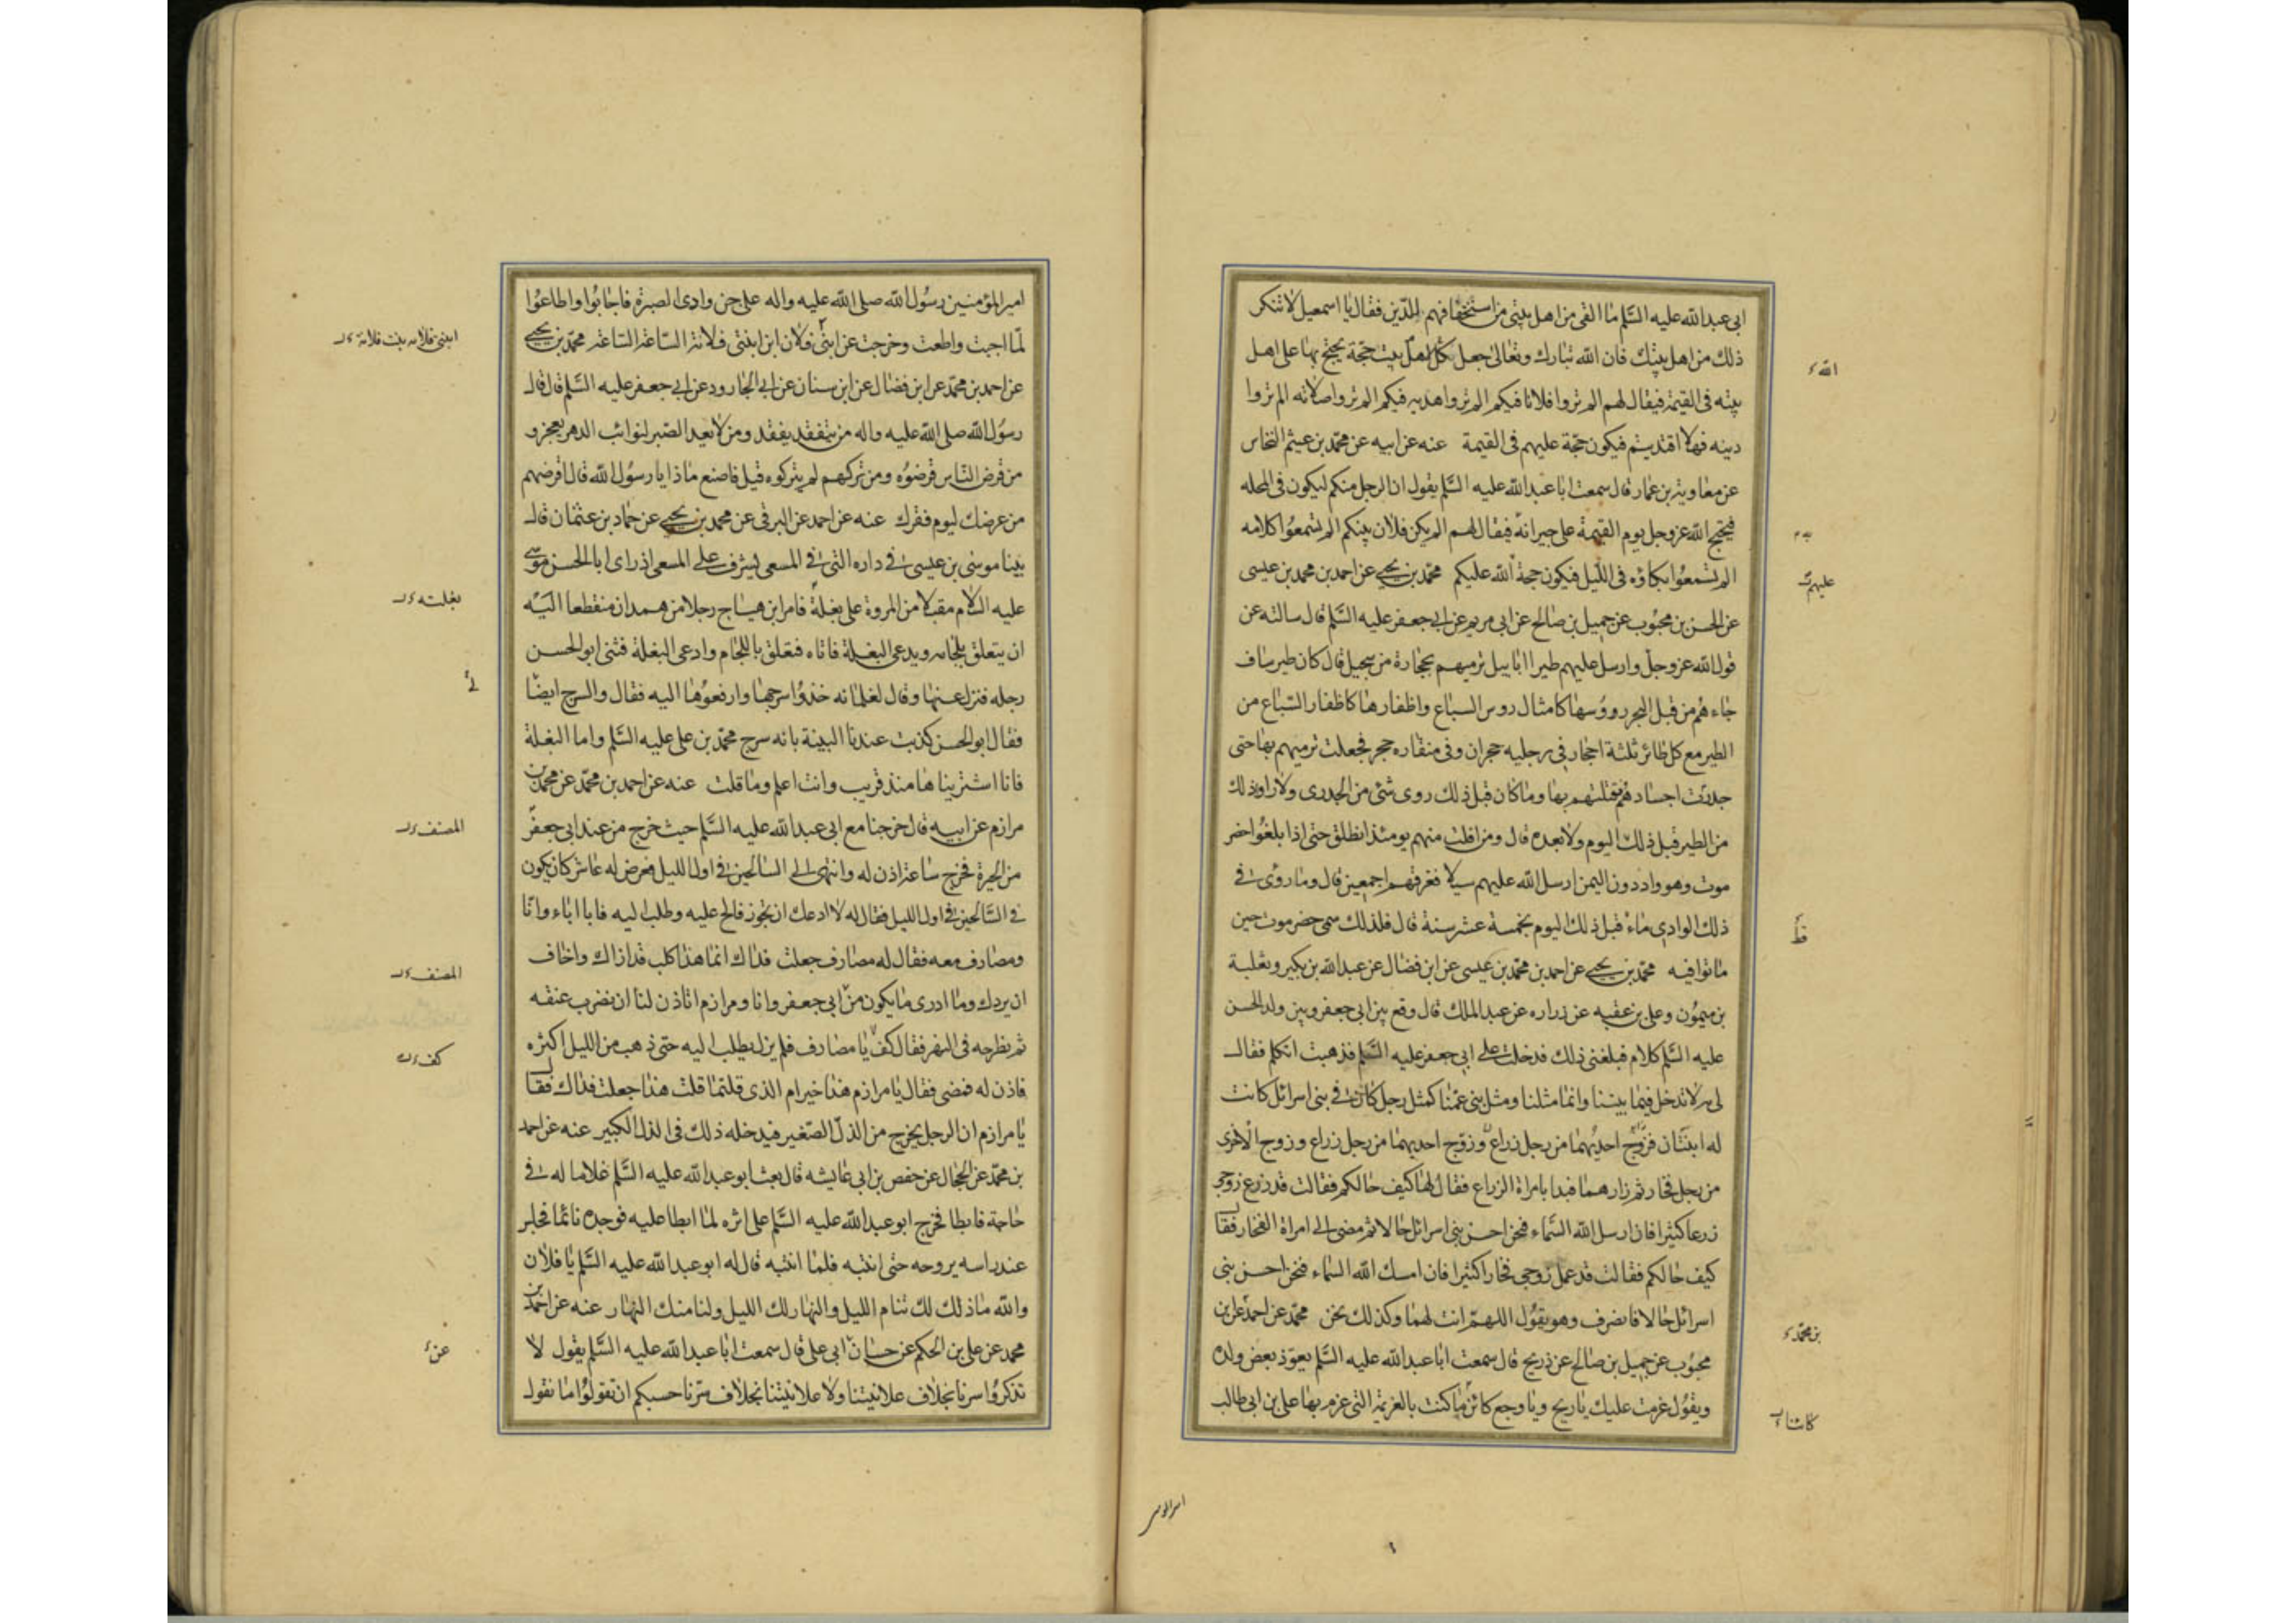 ابى عبد الله عليه السّلم ما القى من اهل بيتى من استخفافهم بالدّين فقال يا اسمعيل لا تنكر
ذلك من اهل بيتك فان الله تبارك وتعالى جعل لكل اهل بيت حجّة يحتج بها على اهل
الله
بيته فى القيمة فيقال لهم الم تروا فلانا فيكم الم تروا هديه فيكم الم تروا صلاته الم تروا
دينه فهلا اقتديتم فيكون حجّة عليهم فى القيمة عنه عن ابيه عن محمّد بن عيثم النخاس
عن معاوية بن عمار قال سمعت ابا عبد الله عليه السّلم يقول ان الرجل منكم ليكون فى المحله
فيحتج الله عز وجل يوم القيمة على جيرانه فيقال لهم الم يكن فلان بينكم الم تسمعوا كلامه
به
الم تسمعوا بكاؤه فى اللّيل فيكون حجة الله عليكم محمّد بن يحيى عن احمد بن محمد بن عيسى
عليهم
عن الحسن بن محبُوب عن جميل بن صالح عن ابى مريم عن ابى جعفر عليه السّلم قال سالته عن
قول الله عز وجلّ وارسل عليهم طيرا ابابيل ترميهم بحجارة من سجيل قال كان طير ساف
جاءهم من قبل البحر روؤسها كامثال روس السباع واظفارها كاظفار السّباع من
الطير مع كل طائر ثلثة احجار فى رجليه حجران وفى منقاره حجر فجعلت ترميهم بها حتى
جدرت اجسادهم فقتلتهم بها وما كان قبل ذلك روى شئ من الجدرى ولا راوذلك
من الطير قبل ذلك اليوم ولا بعده قال ومن افلت منهم يومئذ انطلق حتى اذا بلغوا حضر
موت وهو واد دون اليمن ارسل الله عليهم سيلا فغرقهم اجمعين قال وما روى فى
ذلك الوادى ماء قبل ذلك اليوم بخمسة عشر سنة قال فلذلك سمى حضر موت حين
قط
ماتوا فيه محمّد بن يحيى عن احمد بن محمّد بن عيسى عن ابن فضال عن عبد الله بن بكير وثعلبة
بن ميمون وعلى بن عقبه عن زراره عن عبد الملك قال وقع بين ابى جعفر وبين ولد الحسن
عليه السّلم كلام فبلغنى ذلك فدخلت على ابى جعفر عليه السّلم فذهبت اتكلم فقال
لى مه لا تدخل فيما بيننا وانما مثلنا ومثل بنى عمّنا كمثل رجل كان فى بنى اسرائل كانت
له ابنتان فزوّج احديهما من رجل زراع وزوّج احديهما من رجل زراع وزوج الاخرى
من رجل فخار ثم زارهما فبدا بامراة الزراع فقال لها كيف حالكم فقالت قد زرع زوجى
زرعا كثيرا فان ارسل الله السّماء فنحن احسن بنى اسرائل حالا ثم مضى الى امراة الفخار فقال
كيف حالكم فقالت قد عمل زوجى فخارا كثيرا فان امسك الله السّماء فنحن احسن بنى
اسرائل حالا فانصرف وهو يقول اللهمّ انت لهما وكذلك نحن محمّد عن احمد عن ابن
بن محمّد
محبوب عن جميل بن صالح عن ذريح قال سمعت ابا عبد الله عليه السّلم يعوّذ بعض ولده
ويقول عزمت عليك يا ريح ويا وجع كائن ما كنت بالعزيمة التى عزم بها على بن ابى طالب
كائنا
امير المؤ
امير المؤمنين رسُول الله صلى الله عليه واله على جن وادى الصبرة فاجابوا واطاعوا
لمّا اجبت واطعت وخرجت عن ابنى فلان ابن ابنتى فلانة السّاعة السّاعة محمّد بن يحيى
ابنى فلان بن بنت فلانة
عن احمد بن محمّد عن ابن فضال عن ابن سنان عن ابى الجارود عن ابى جعفر عليه السّلم قال قال
رسُول الله صلى الله عليه واله من يتفقد يفقد ومن لا يعد الصّبر لنوائب الدهر يعجز و
من قرض النّاس قرضوه ومن تركهم لم يتركوه قيل فاصنع ماذا يا رسُول الله قال اقرضهم
من عرضك ليوم فقرك عنه عن احمد عن البرقى عن محمد بن يحيى عن حماد بن عثمان قال
بينا موسى بن عيسى فى داره التى فى المسعى يشرف على المسعى اذ راى ابا الحسن موسى
عليه السلام مقبلا من المروة على بغلة فامر ابن هياج رجلا من همدان منقطعا اليه
بغلته
ان يتعلق بلجامه ويدعى البغلة فاتاه فتعلق باللجام وادعى البغلة فثنى ابو الحسن
رجله فنزل عنها وقال لغلمانه خذوا سرجها وارفعوها اليه فقال والسرج ايضا
لى
فقال ابو الحسن كذبت عندنا البينة بانه سرج محمّد بن على عليه السّلم واما البغلة
فانا اشتريناها منذ قريب وانت اعلم وما قلت عنه عن احمد بن محمّد عن محمّد بن
مرازم عن ابيه قال خرجنا مع ابى عبد الله عليه السّلم حيث خرج من عند ابى جعفر
المصنف
من الحيرة فخرج ساعة اذن له وانتهى الى السالحين فى اول الليل فعرض له عاشر كان يكون
فى السّالحين فى اول الليل فقال له لا ادعك ان تجوز فالح عليه وطلب اليه فابا اباء وانا
ومصارف معه فقال له مصارف جعلت فداك انما هذا كلب قد اذاك واخاف
المصنف
ان يردك وما ادرى ما يكون من ابى جعفر وانا ومرازم اتاذن لنا ان نضرب عنقه
ثم نطرحه فى النهر فقال كفّ يا مصارف فلم يزل يطلب اليه حتى ذهب من الليل اكثره
كف
فاذن له فمضى فقال يا مرازم هذا خير ام الذى قلتما قلت هذا جعلت فداك فقال
يا مرازم ان الرجل يخرج من الذلّ الصّغير فيدخله ذلك فى الذل الكبير عنه عن احمد
بن محمّد عن الحجال عن حفص بن ابى عايشه قال بعث ابو عبد الله عليه السّلم غلاما له فى
حاجة فابطا فخرج ابو عبد الله عليه السّلم على اثره لما ابطا عليه فوجده نائما فجلس
عند راسه يروحه حتى انتبه فلما انتبه قال له ابو عبد الله عليه السّلم يا فلان
والله ما ذلك لك تنام الليل والنهار لك الليل ولنا منك النهار عنه عن احمد بن
محمد عن على بن الحكم عن حسان ابى على قال سمعت ابا عبد الله عليه السّلم يقول لا
عن
تذكروا سرنا بخلاف علانيتنا ولا علانيتنا بخلاف سرنا حسبكم ان تقولوا ما نقول